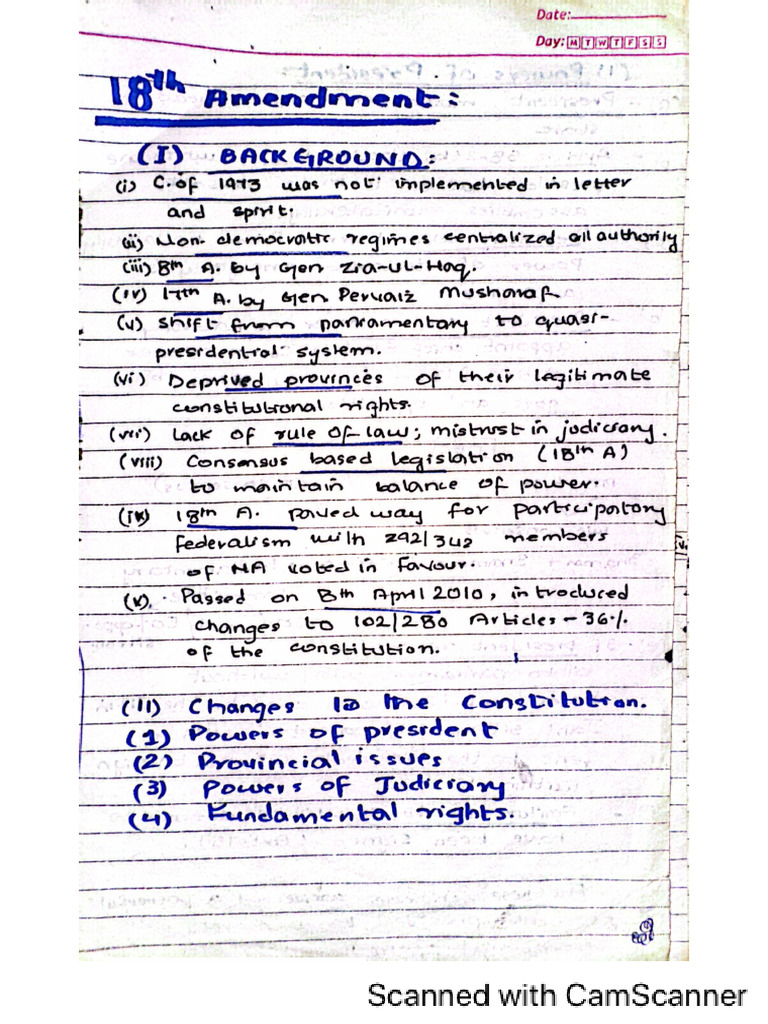 Date:
Day: M T W T F S S
18th Amendment:
(I) BACKGROUND:
(i) C. of 1973 was not implemented in letter
and spirit.
(ii) Non-democratic regimes centralized all authority
(iii) 8th A. by Gen Zia-ul-Haq.
(iv) 17th A. by Gen Pervaiz Musharaf
(v) shift from parliamentary to quasi-
presidential system.
(vi) Deprived provinces of their legitimate
constitutional rights.
(vii) Lack of rule of law; mistrust in judiciary.
(viii) Consensus based legislation (18th A)
to maintain balance of power.
(ix) 18th A. paved way for participatory
federalism with 292/342 members
of NA voted in favour.
(x). Passed on 8th April 2010, introduced
changes to 102/280 Articles - 36%
of the constitution.
(II) Changes to the Constitution.
(1) Powers of president
(2) Provincial issues
(3) Powers of Judiciary
(4) Fundamental rights.
Scanned with CamScanner